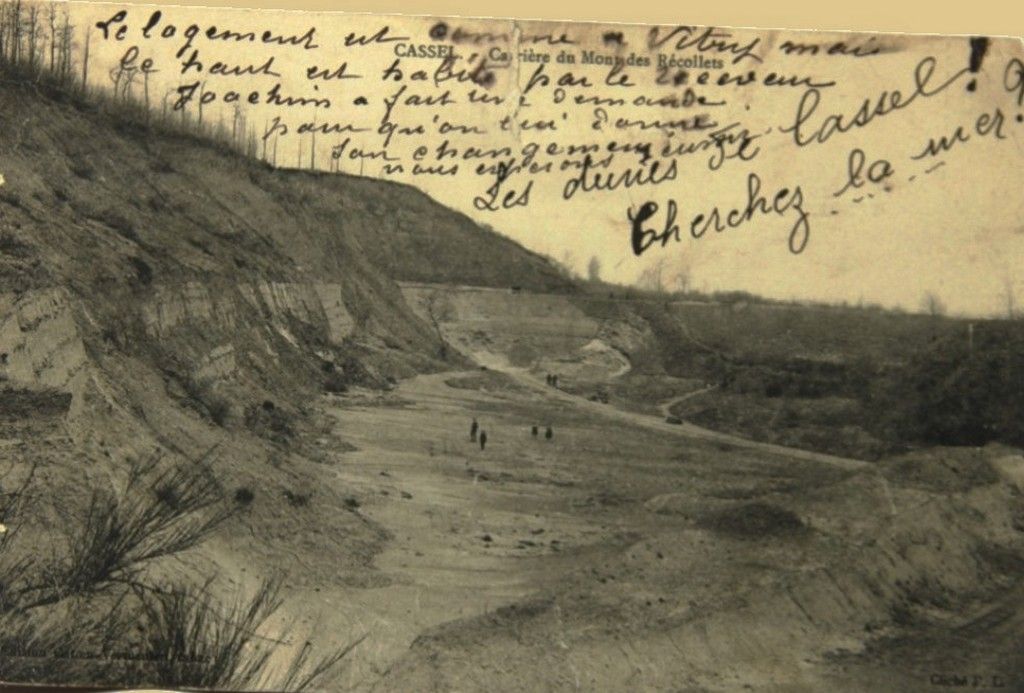 Le logement est comme a Vitry mais
CASSEL - Carrière du Mont des Récollets
le haut est habité par le receveur
Joachim a fait une demande
pour qu'on lui donne
son changement
nous espérons
Les dunes de Cassel !
Cherchez la mer ?
Cliché F. D.